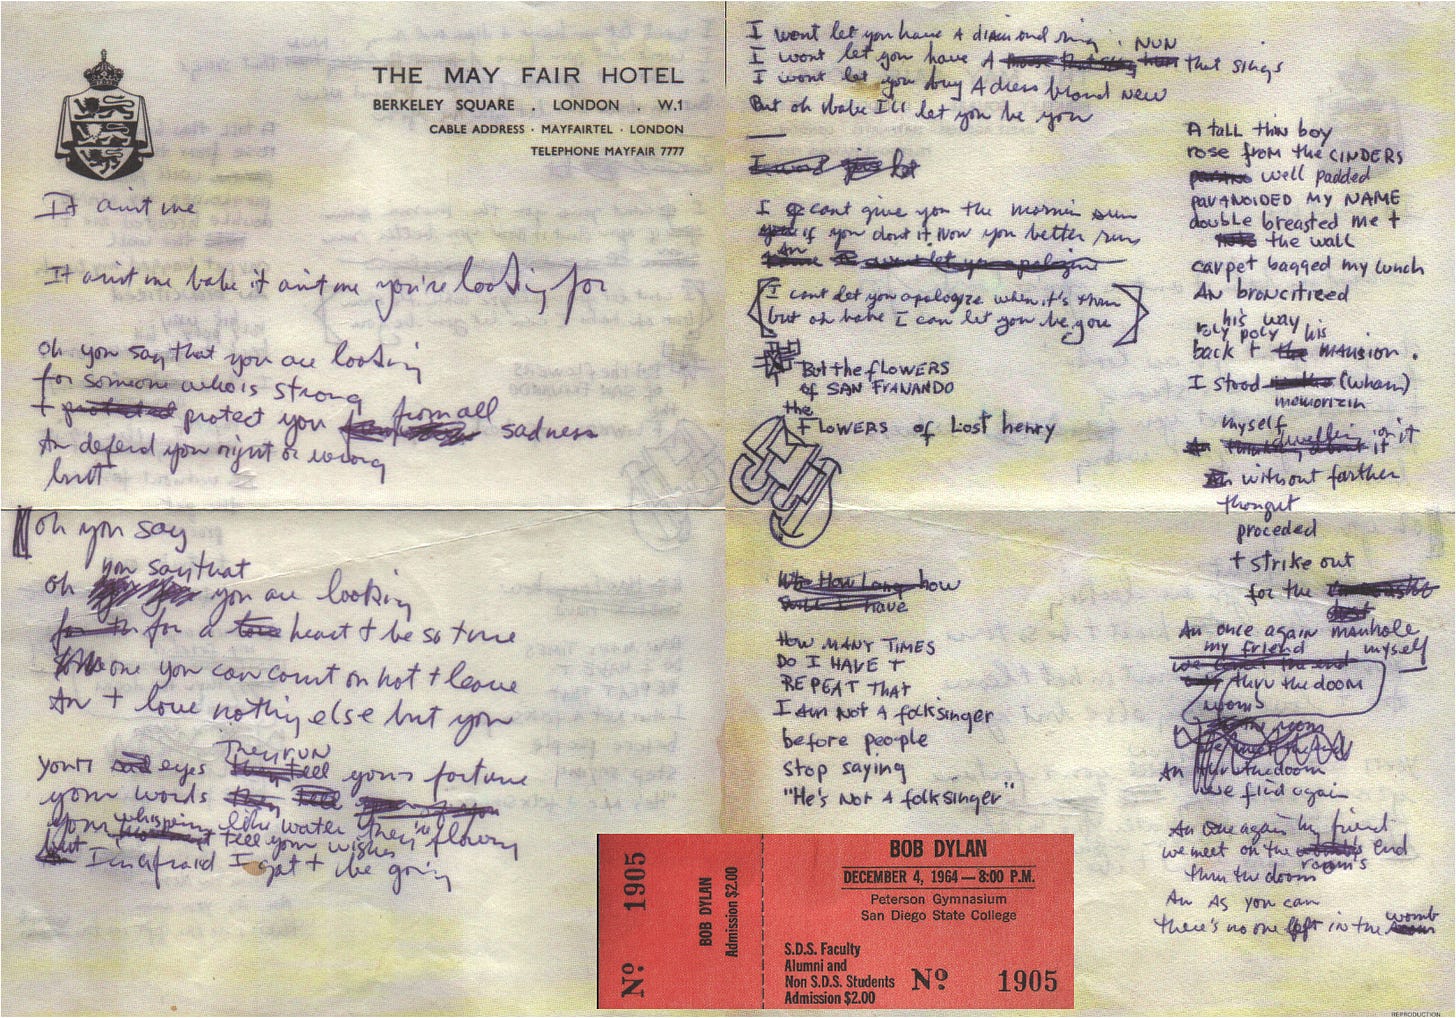 THE MAY FAIR HOTEL
BERKELEY SQUARE . LONDON . W.1
CABLE ADDRESS · MAYFAIRTEL · LONDON
TELEPHONE MAYFAIR 7777
It aint me
It aint me babe it aint me you're looking for
Oh you say that you are looking
for someone who is strong
+ protected protect you from all sadness
An defend you right or wrong
but
Oh you say
you say that
oh you are looking
for a love heart + be so true
someone you can count on not + leave
An + love nothing else but you
They run
your sad eyes your fortune
your words
your whispering like water they're flowing
but tell your wishes
I'm afraid I got + be going
I wont let you have A diamond ring
NUN
I wont let you have A that sings
I wont let you buy A dress brand new
But oh babe I'll let you be you
I let
I cant give you the mornin sun
if you dont it Now you better run
An
I cant let you apologize when it's
but oh babe I can let you be you
But the flOWERS
of SAN FRANANDO
the
FLOWERS of Lost henry
How Long how
have
HOW MANY TIMES
DO I HAVE +
REPEAT THAT
I AM NOT A folksinger
before people
stop saying
"He's NOT A folksinger"
A tall thin boy
rose from the CINDERS
well padded
paranoided MY NAME
double breasted me +
the wall
carpet bagged my lunch
AN bronciticed
his way
roly poly his
back + the MANSION.
I stood (wham)
memorizin
myself
dwellin on it
An thinkin about it
An without farther
thought
proceded
+ strike out
for the
An once again manhole
my friend myself
thru the doom
rooms
the room
An thru the doom
we find again
An once again my friend
we meet on the end
room's
thru the doom
An As you can
there's no one left in the womb
Nº 1905
BOB DYLAN
Admission $2.00
BOB DYLAN
DECEMBER 4, 1964 — 8:00 P.M.
Peterson Gymnasium
San Diego State College
S.D.S. Faculty
Alumni and
Non S.D.S. Students
Admission $2.00
Nº 1905
REPRODUCTION